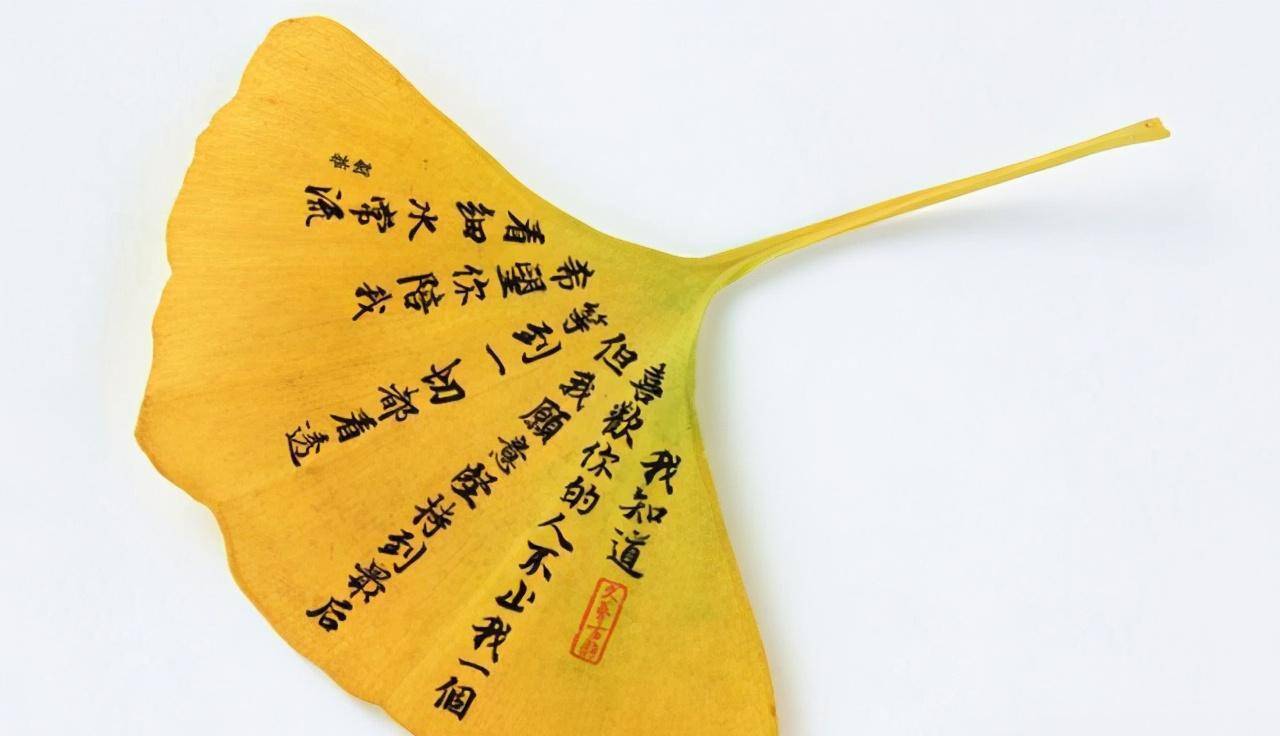 我知道
喜歡你的人不止我一個
但我願意堅持到最后
等到一切都看透
希望你陪我
看細水常流